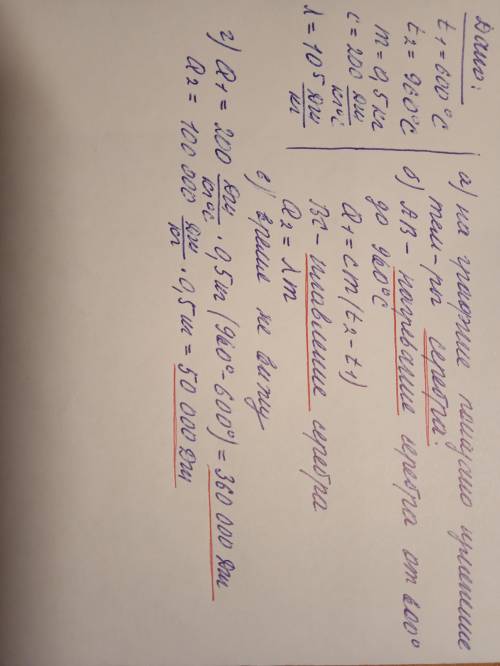 Дано:
t₁=600°С
t₂=960°С
m=0,5кг
с=200 Дж/кг°С
λ=10⁵ Дж/кг
а) на графике показано изменение
тем-ры серебра.
б) АВ - нагревание серебра от 600°
до 960°С
Q₁=cm(t₂-t₁)
ВС - плавление серебра
Q₂=λm
в) время не вижу
г) Q₁=200 Дж/кг°С · 0,5кг (960°-600°)=360 000 Дж
Q₂=100 000 Дж/кг · 0,5кг = 50 000 Дж